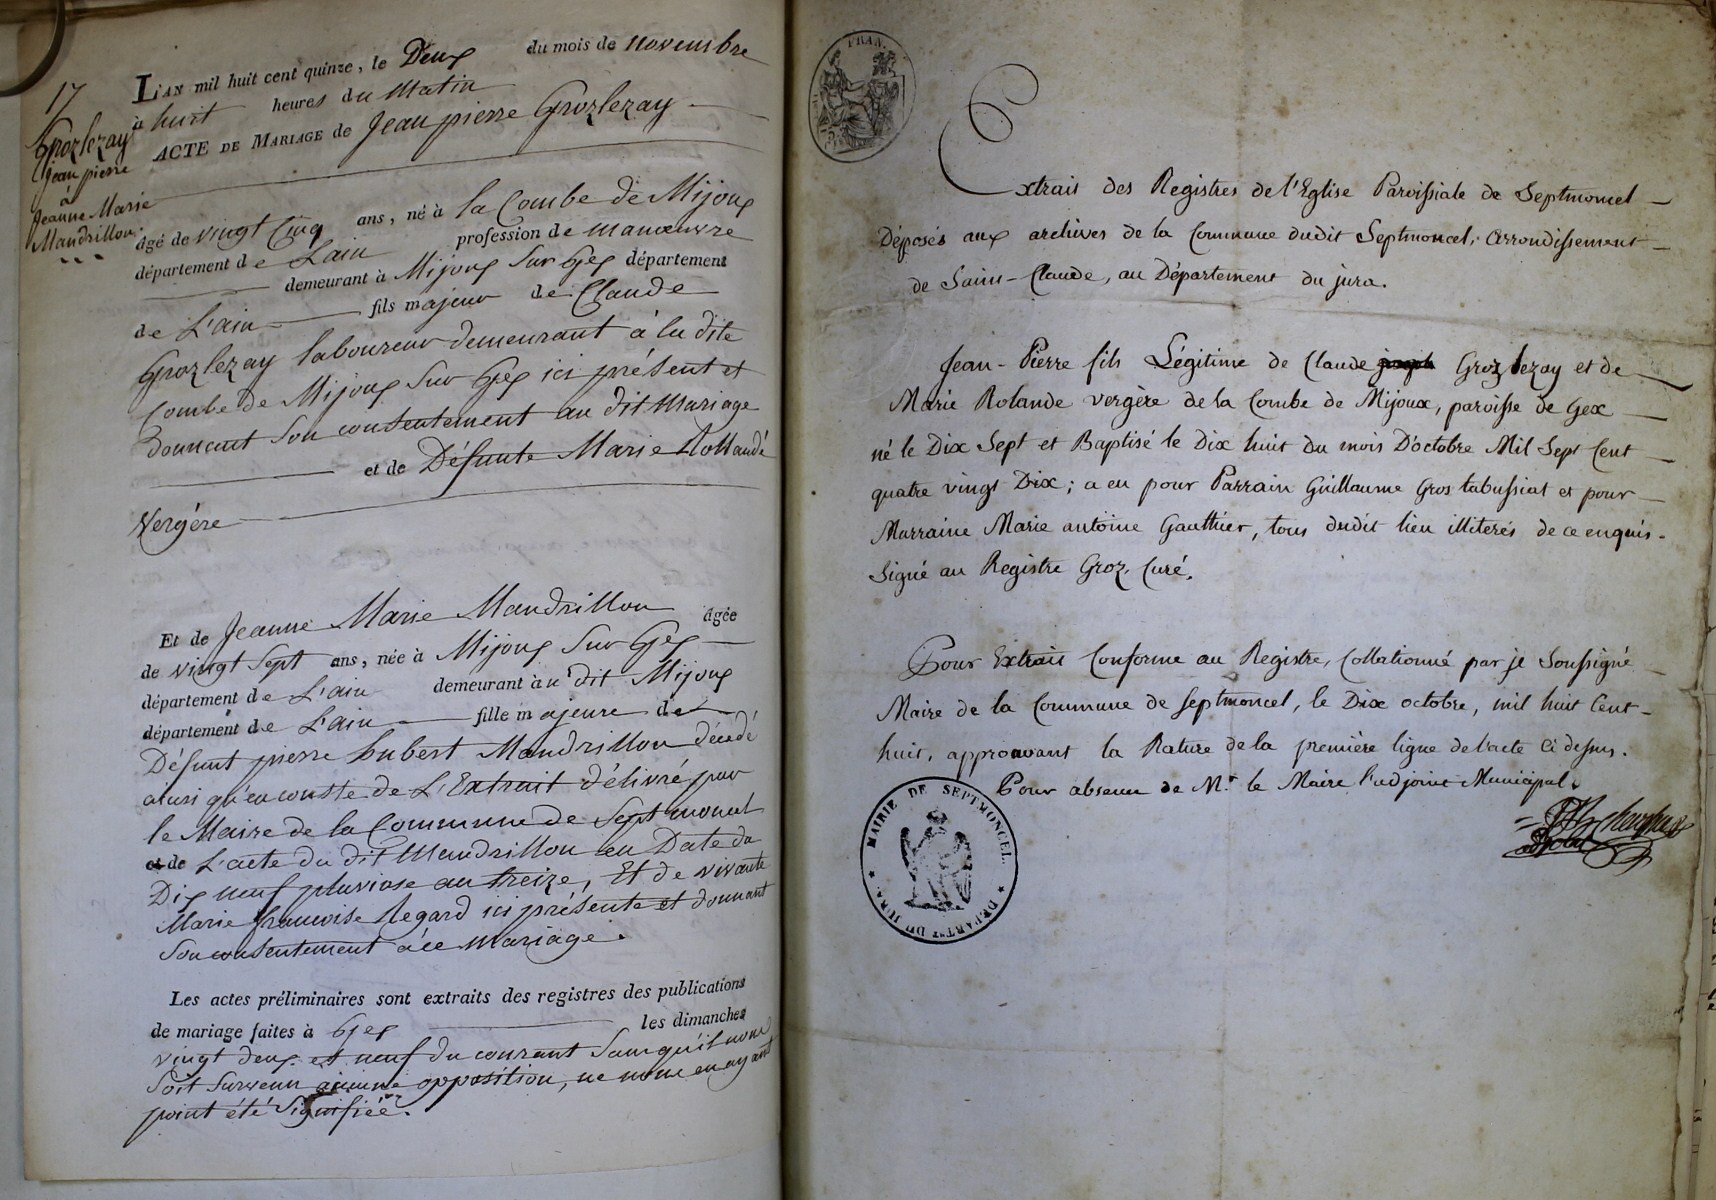 17
Grozlezay
jean pierre
à
Jeanne Marie
Mandrillon.
L'AN mil huit cent quinze, le Deux du mois de novembre
à huit heures du Matin
ACTE DE MARIAGE de Jean pierre Grozlezay
âgé de vingt Cinq ans, né à la Combe de Mijoux
département de L'ain profession de manœuvre
demeurant à Mijoux Sur Gex département
de L'ain fils majeur de Claude
Grozlezay laboureur demeurant à la dite
Combe de Mijoux Sur Gex ici présent et
Donnant Son consentement au dit Mariage
et de Défunte Marie Rollande
Vergère
Et de Jeanne Marie Mandrillon âgée
de vingt Sept ans, née à Mijoux Sur Gex
département de L'ain demeurant àu dit Mijoux
département de L'ain fille majeure de
Défunt pierre hubert Mandrillon décédé
ainsi qu'en conste de L'Extrait délivré par
le Maire de la Commune de Sept moncel
et de L'acte du dit Mandrillon en Date du
Dix neuf pluviose an treize, Et de vivante
Marie francoise Regard ici présente et donnant
Son consentement à ce mariage.
Les actes préliminaires sont extraits des registres des publications
de mariage faites à Gex les dimanches
vingt deux et neuf du courant Sans qu'il nous
Soit Survenu aucune opposition, ne nous en ayant
point été Signifiée.
FRAN.
Extrait des Registres de l'Eglise Paroissiale de Septmoncel
Déposés aux archives de la Commune dudit Septmoncel, Arrondissement
de Saint-Claude, au Département du jura.
Jean-Pierre fils Légitime de Claude joseph Groz lezay et de
Marie Rolande vergère de la Combe de Mijoux, paroisse de Gex
né le Dix Sept et Baptisé le Dix huit du mois D'octobre Mil Sept Cent
quatre vingt Dix; a eu pour Parrain Guillaume Gros tabussiat et pour
Marraine Marie antoine Gauthier, tous dudit lieu illiterés de ce enquis.
Signé au Registre Groz, Curé.
Pour Extrait Conforme au Registre, Collationné par je Soussigné
Maire de la Commune de Septmoncel, le Dix octobre, mil huit Cent
huit, approuvant la Rature de la première ligne de l'acte Ci dessus.
Pour absence de Mr. le Maire l'adjoint Municipal.
MAIRIE DE SEPTMONCEL. ★ DÉPARTt. DU JURA. ★